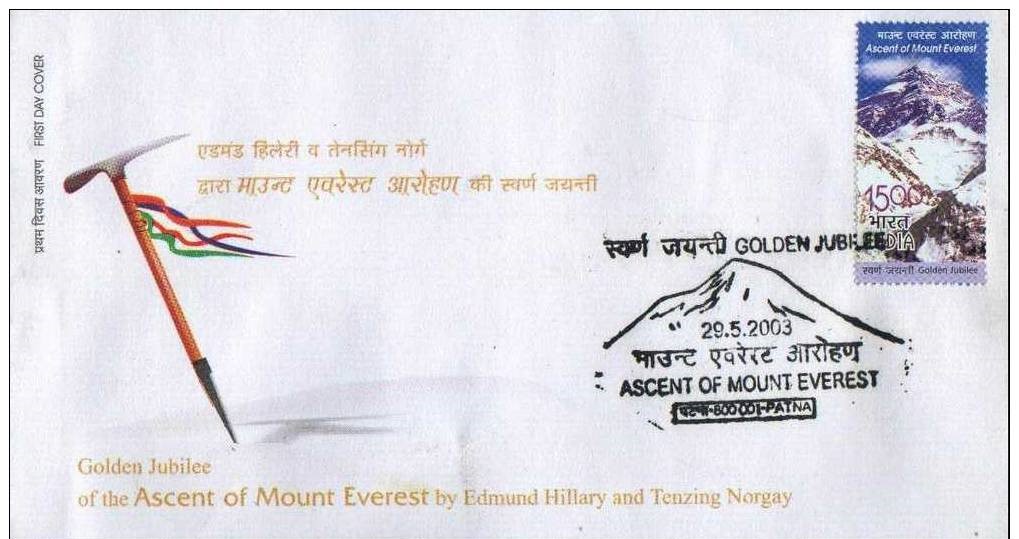 प्रथम दिवस आवरण FIRST DAY COVER
माउन्ट एवरेस्ट आरोहण
Ascent of Mount Everest
1500
भारत
INDIA
स्वर्ण जयन्ती Golden Jubilee
एडमंड हिलेरी व तेनसिंग नोर्गे
द्वारा माउन्ट एवरेस्ट आरोहण की स्वर्ण जयन्ती
स्वर्ण जयन्ती GOLDEN JUBILEE
29.5.2003
माउन्ट एवरेस्ट आरोहण
ASCENT OF MOUNT EVEREST
पटना-800 001-PATNA
Golden Jubilee
of the Ascent of Mount Everest by Edmund Hillary and Tenzing Norgay